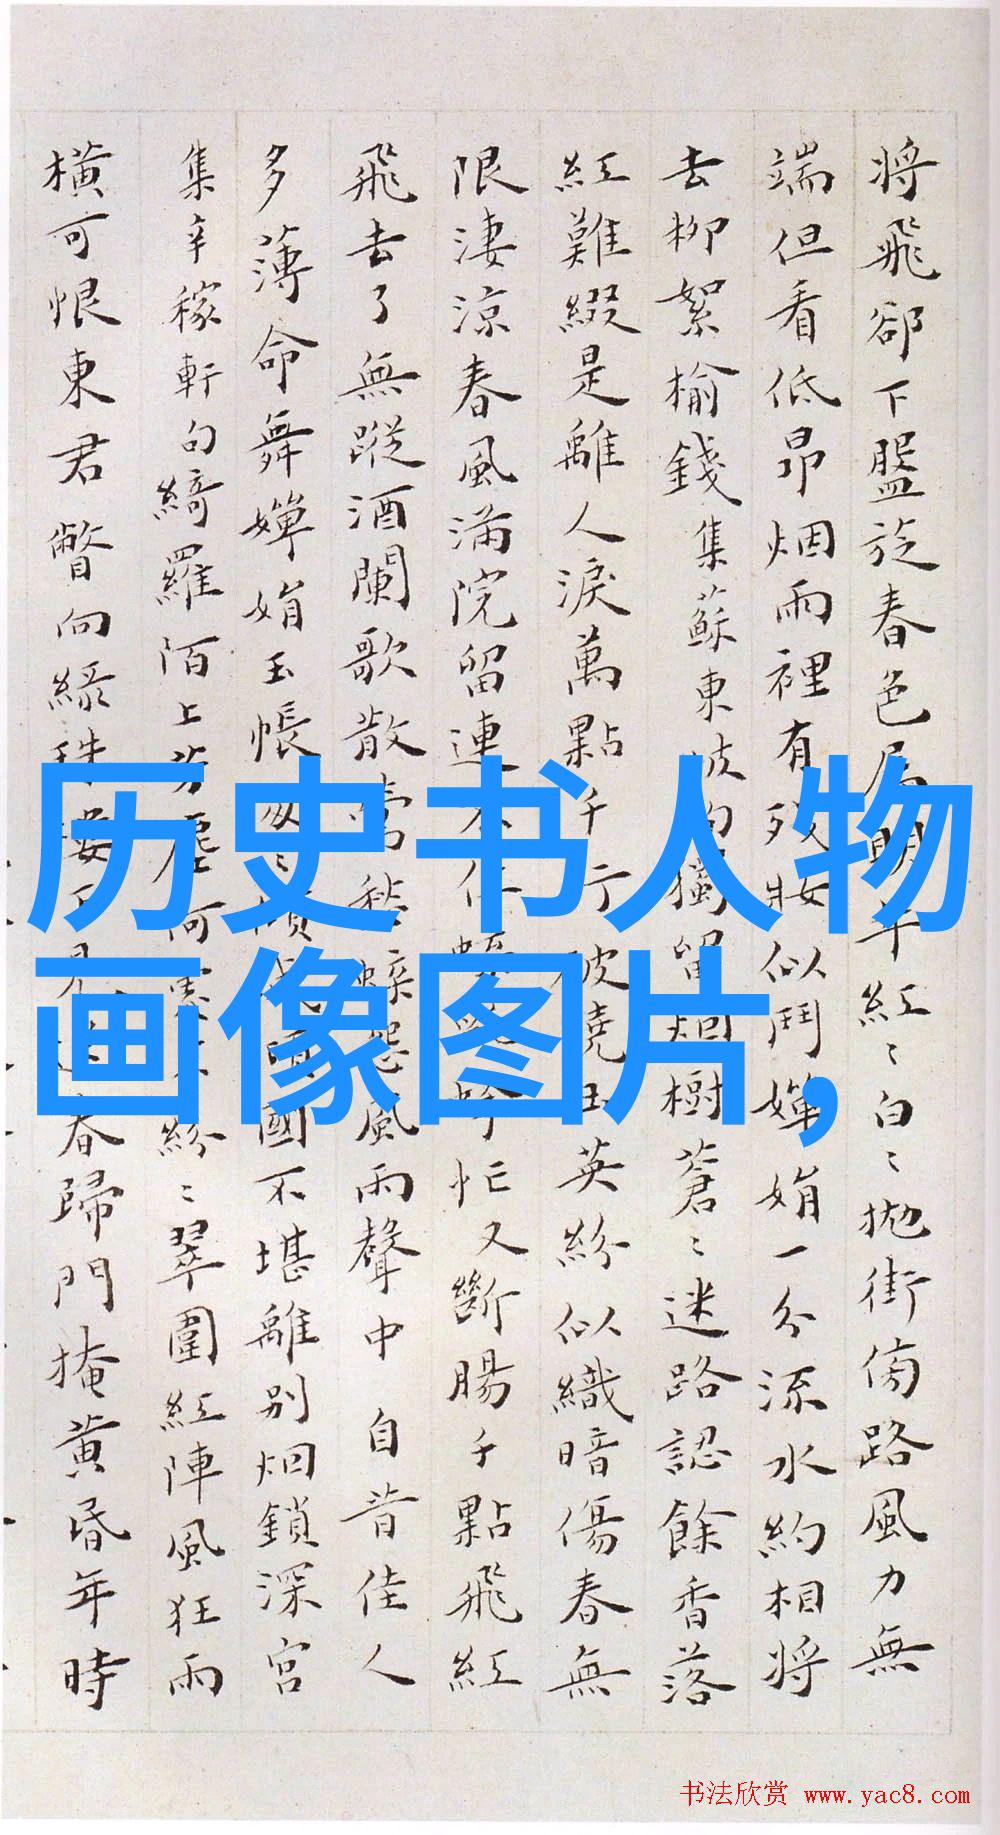 將飛卻下盤旋春色屬明年紅〻白〻拋街傍路風力無
端但看低昂烟雨裡有殘妝似鬥嬋娟一分流水約相將
去柳絮榆錢集蘇東坡句獨留烟樹蒼〻迷路認餘香落
紅難綴是離人淚萬點千行破曉玉英紛似織暗傷春無
限淒涼春風滿院留連不住忙又斷腸千點飛紅
飛去了無蹤酒闌歌散鶯愁蝶怨風雨聲中自昔佳人
多薄命舞嬋娟玉帳匆〻傾國不堪離別烟鎖深宮
集辛稼軒句綺羅陌上芳塵何紛〻翠圍紅陣風狂雨
橫可恨東君瞥向綠珠樓下見春歸門掩黃昏年時
历史书人物
画像图片,
书法欣赏 www.yac8.com